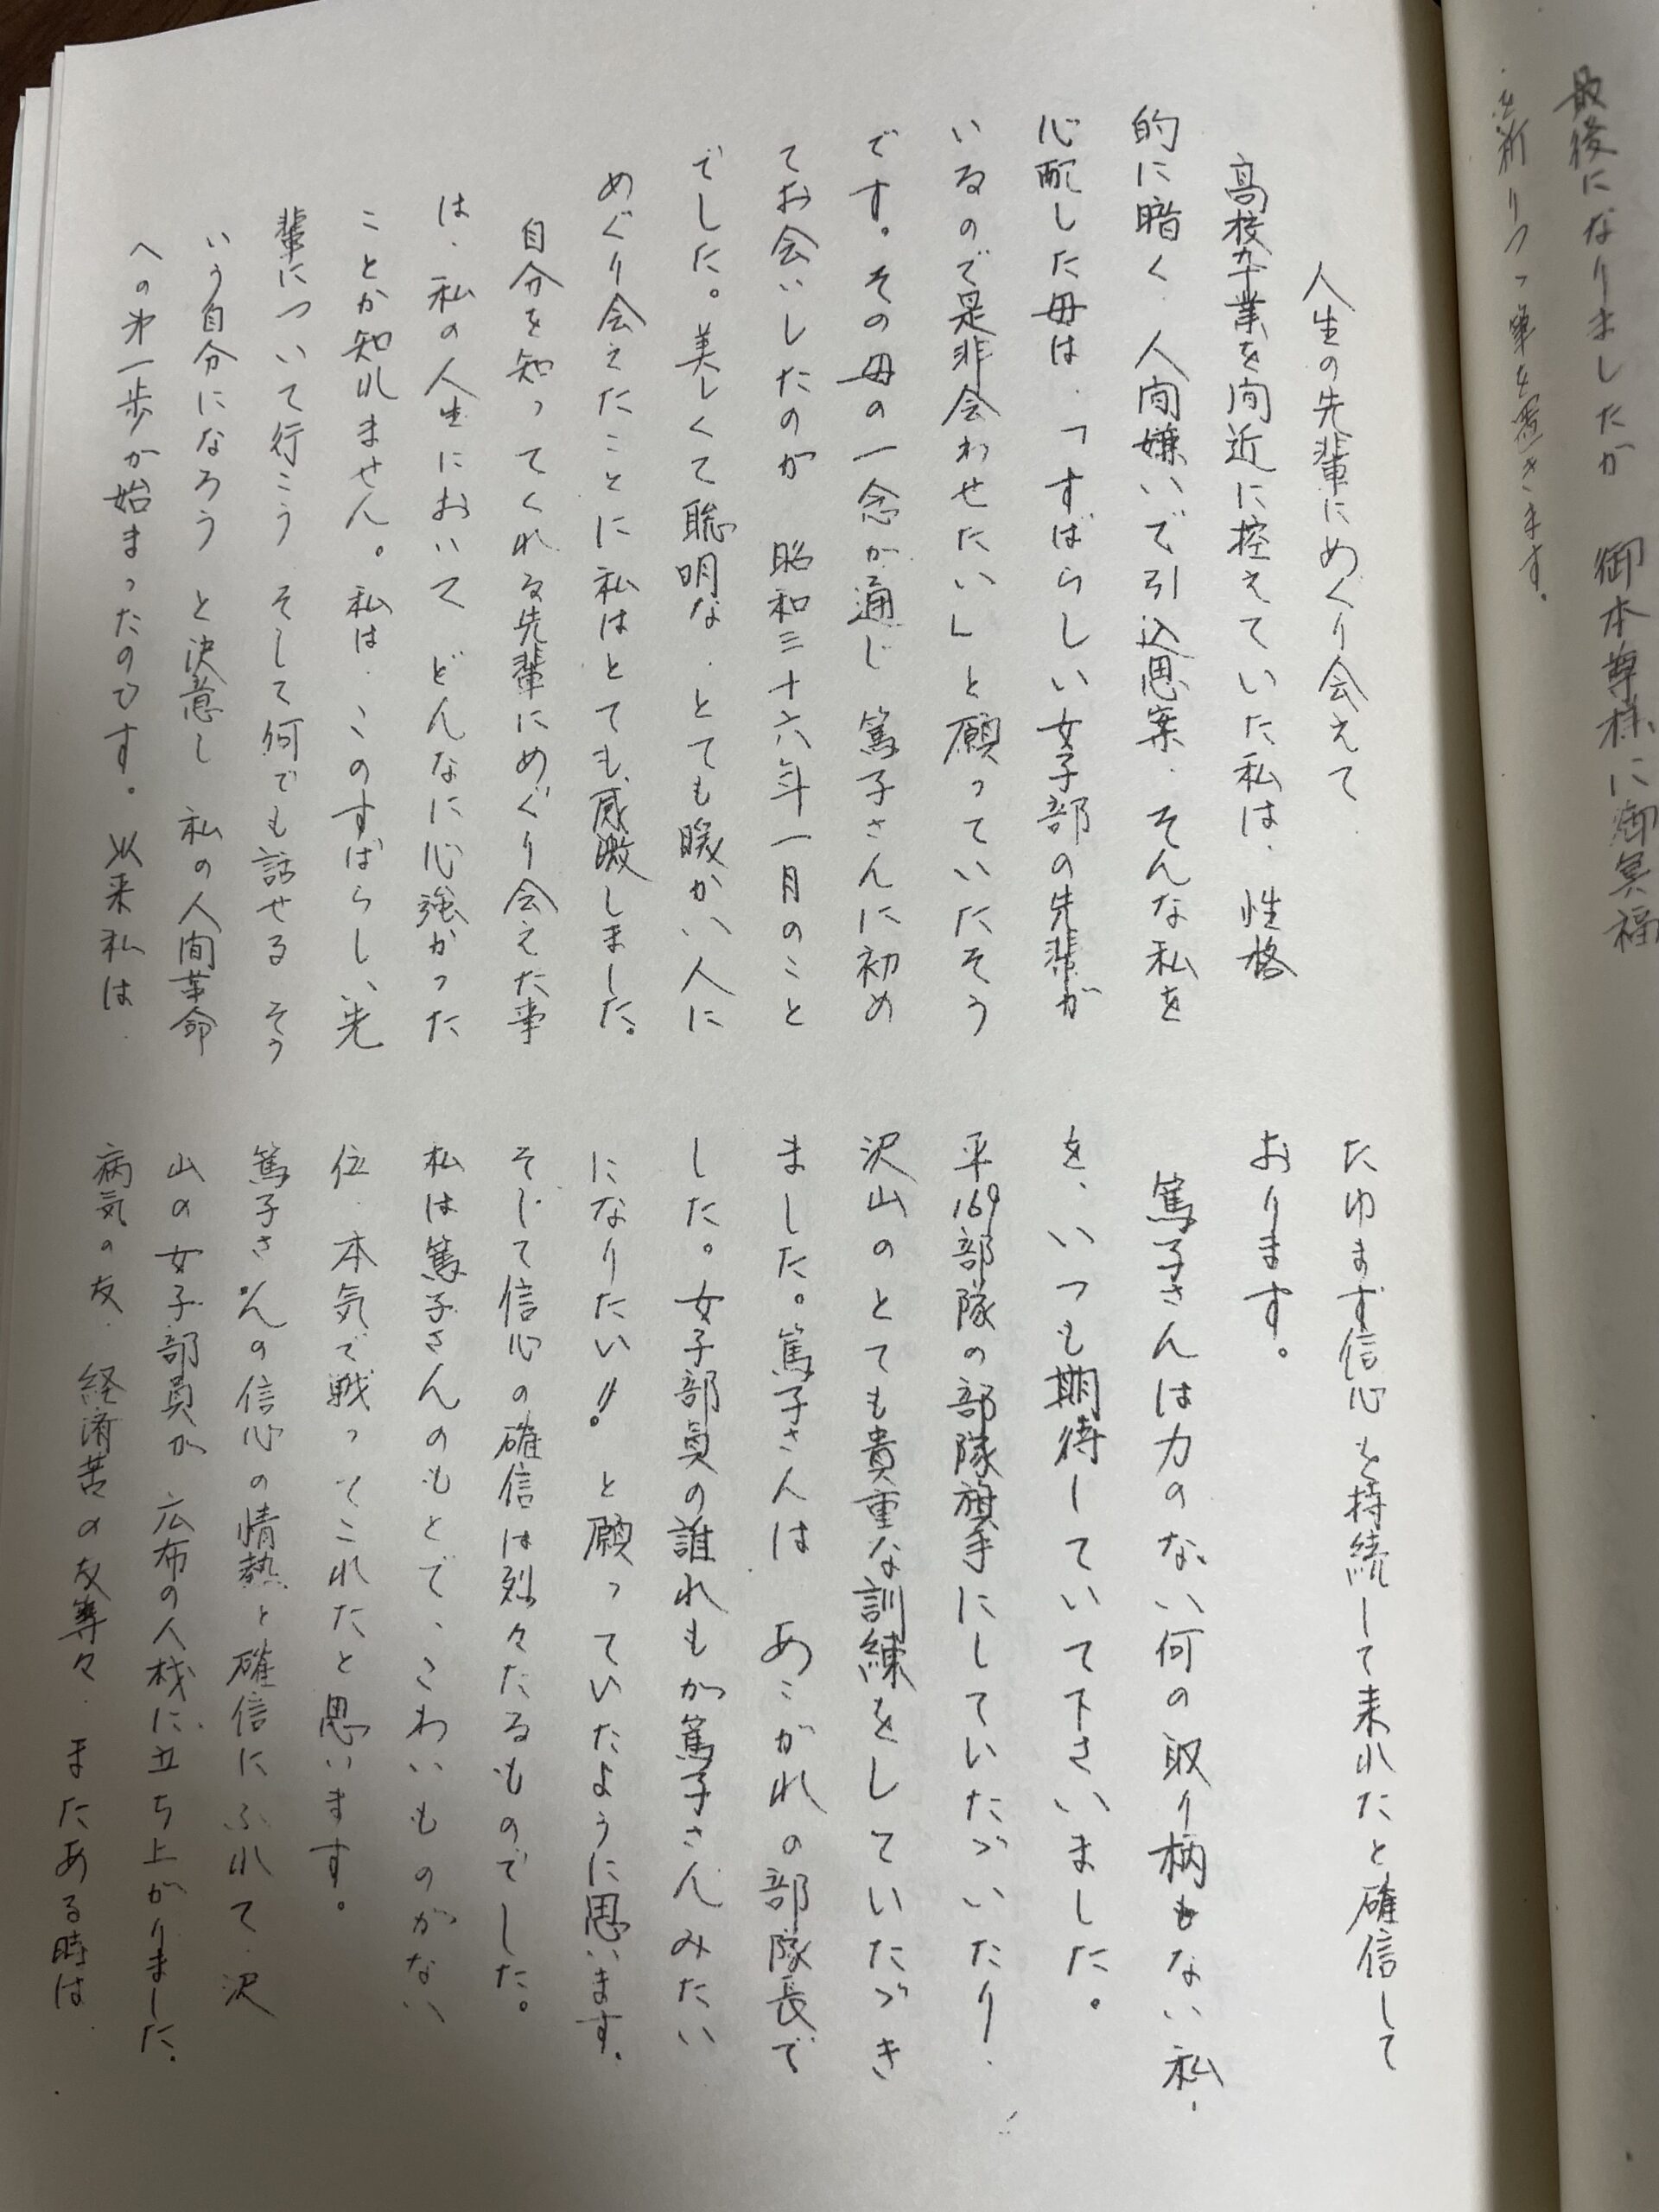 最後になりましたが 御本尊様に御冥福
を祈りつつ筆を置きます。
人生の先輩にめぐり会えて
高校卒業を間近に控えていた私は、性格
的に暗く、人間嫌いで、引込思案、そんな私を
心配した母は、「すばらしい女子部の先輩が
いるので是非会わせたい」と願っていたそう
です。その母の一念が通じ 篤子さんに初め
てお会いしたのが 昭和三十六年一月のこと
でした。美しくて聡明な、とても暖かい人に
めぐり会えたことに私はとても感激しました。
自分を知ってくれる先輩にめぐり会えた事
は、私の人生において どんなに心強かった
ことか知れません。私は、このすばらしい先
輩について行こう そして何でも話せる そう
いう自分になろう と決意し 私の人間革命
への第一歩が始まったのです。以来私は、
たゆまず信心を持続して来れたと確信して
おります。
篤子さんは力のない何の取り柄もない私
を、いつも期待していて下さいました。
平169部隊の部隊旗手にしていただいたり、
沢山のとても貴重な訓練をしていただき
ました。篤子さんは あこがれの部隊長で
した。女子部員の誰れもが篤子さんみたい
になりたい!! と願っていたように思います。
そして信心の確信は烈々たるものでした。
私は篤子さんのもとで、こわいものがない
位、本気で戦ってこれたと思います。
篤子さんの信心の情熱と確信にふれて、沢
山の女子部員が 広布の人材に立ち上がりました。
病気の友、経済苦の友等々、またある時は、